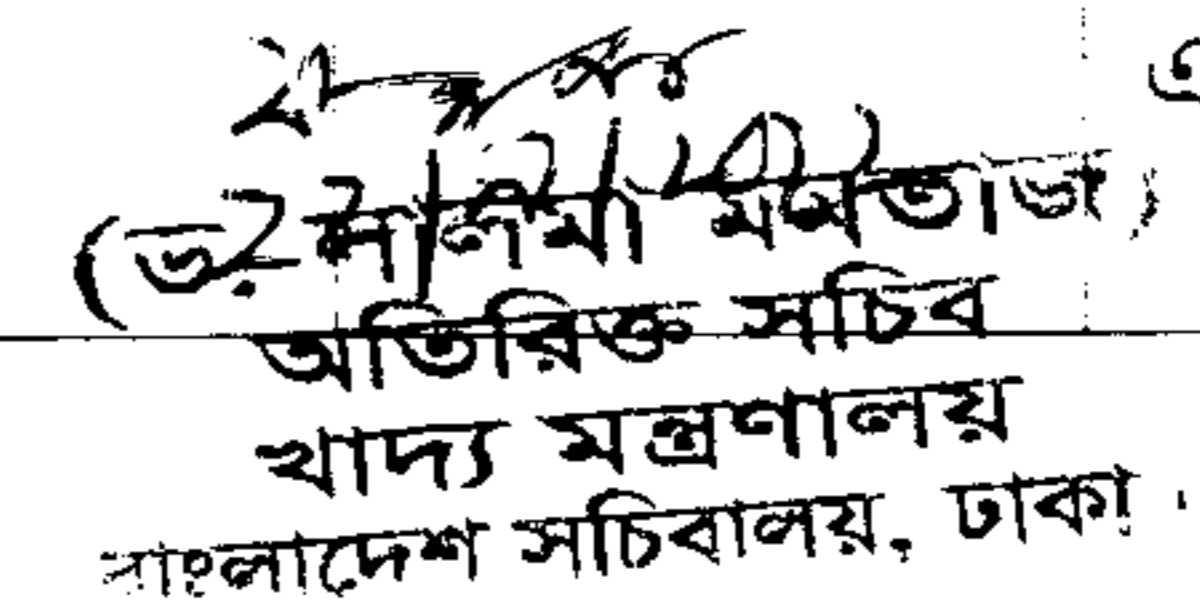 (ড. সালমা মমতাজ)
অতিরিক্ত সচিব
খাদ্য মন্ত্রণালয়
বাংলাদেশ সচিবালয়, ঢাকা ।